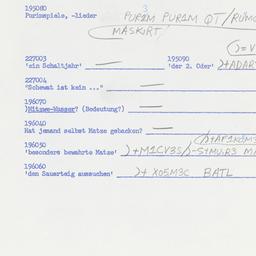 195080
Purimspiele, -lieder PUR1M PUR1M QT/RUMO
MASKIRT
()=V
227003 195090
'ein Schaltjahr' 'der 2. Oder' )+ADAR
227004
"Schewat ist kein ..."
196070
)Mitzwe-Wasser? (Bedeutung?)
196040
Hat jemand selbst Matze gebacken?
196050
'besonders bewahrte Matze' )+M1CV3S/)-S+MUR3 MA
196060
'den Sauerteig aussuchen' )+ XO5M3C BATL